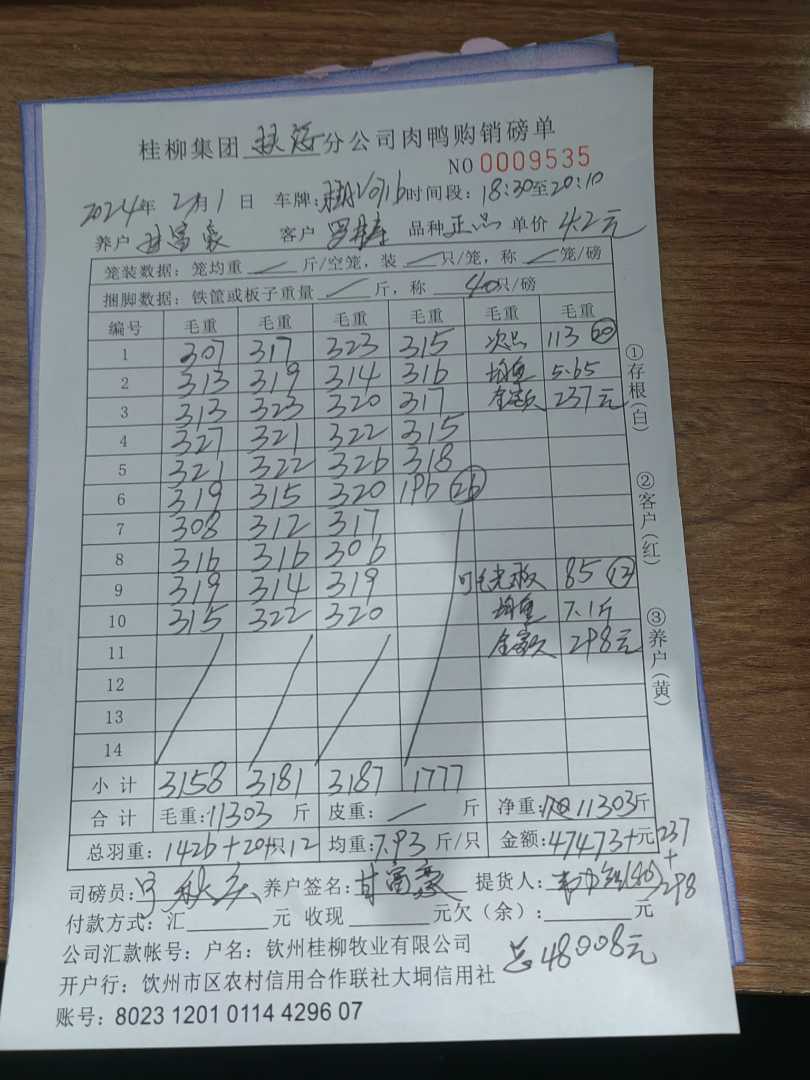 桂柳集团 分公司肉鸭购销磅单
NO 0009535
2024年 2月1日 车牌: 时间段: 18:30至20:10
养户 甘富豪 客户 品种 正品 单价 4.2元
笼装数据: 笼均重 / 斤/空笼, 装 / 只/笼, 称 / 笼/磅
捆脚数据: 铁筐或板子重量 / 斤, 称 40只/磅
编号 毛重 毛重 毛重 毛重 毛重 毛重
1 307 317 323 315 次品 113 20
2 313 319 314 316 均重 5.65
3 313 323 320 317 金额 237元
4 327 321 322 315
5 321 322 326 318
6 319 315 320 196 26
7 308 312 317
8 316 316 306
9 319 314 319 85 12
10 315 322 320 均重 7.1斤
11 金额 298元
12
13
14
小计 3158 3181 3187 1777
合计 毛重: 11303 斤 皮重: / 斤 净重: 11303斤
总羽重: 1426+20只12 均重: 7.93 斤/只 金额: 47473+元237
+
298
司磅员: 养户签名: 甘富豪 提货人:
付款方式: 汇 元 收现 元欠(余): 元
公司汇款帐号: 户名: 钦州桂柳牧业有限公司
总48008元
开户行: 钦州市区农村信用合作联社大垌信用社
账号: 8023 1201 0114 4296 07
①存根(白)
②客户(红)
③养户(黄)